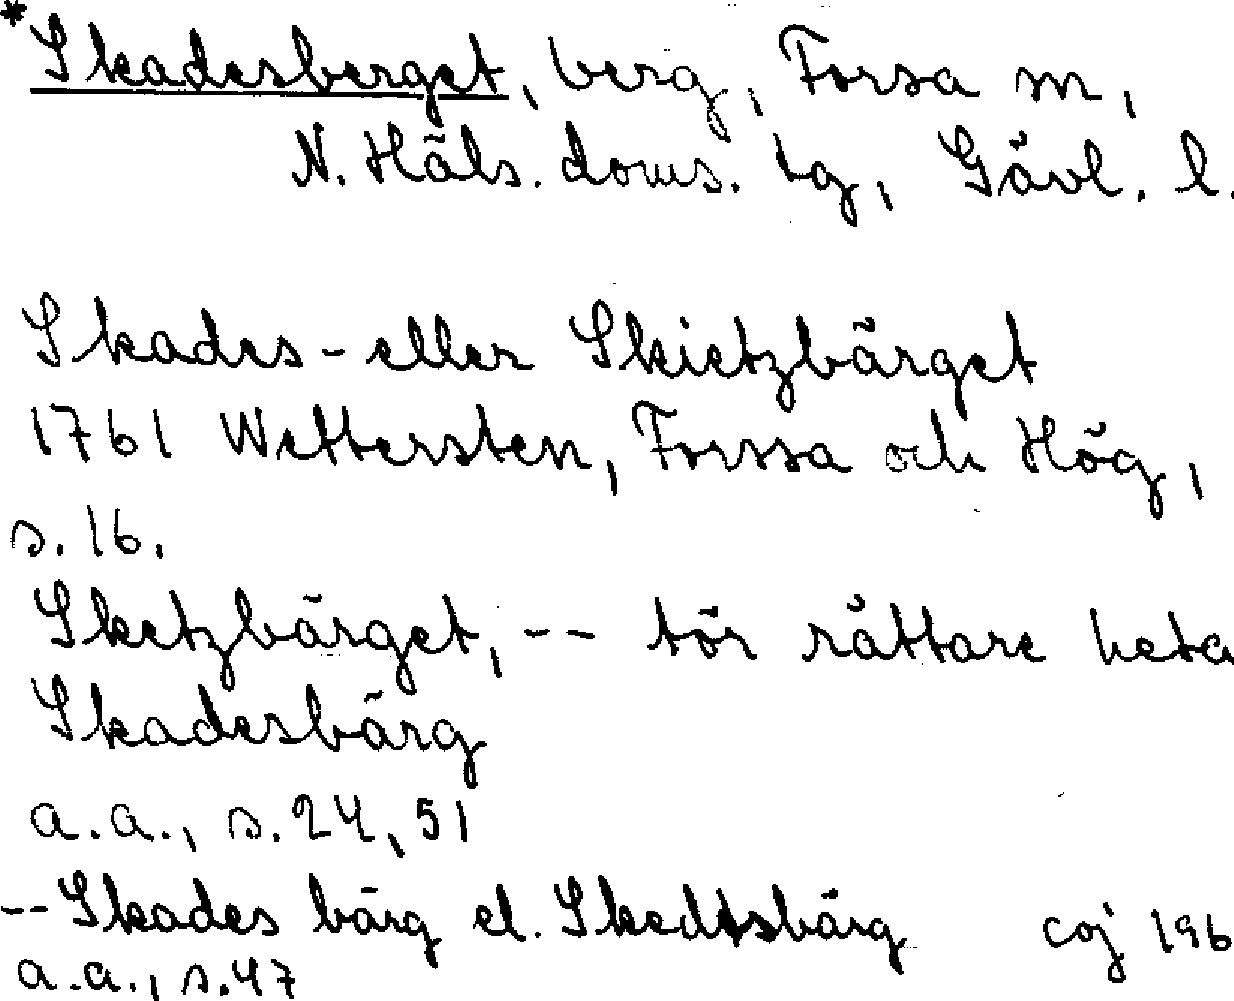 *Skadesberget, berg, Forsa sn,
N. Häls. doms. tg, Gävl. l.
Skades- eller Skietzbärget
1761 Wettersten, Forssa och Hög,
s. 16.
Sketzbärget, -- tör rättare heta
Skadesbärg
a.a., s. 24, 51
-- Skades bärg el. Skedtsbärg
a.a., s. 47
coj 196